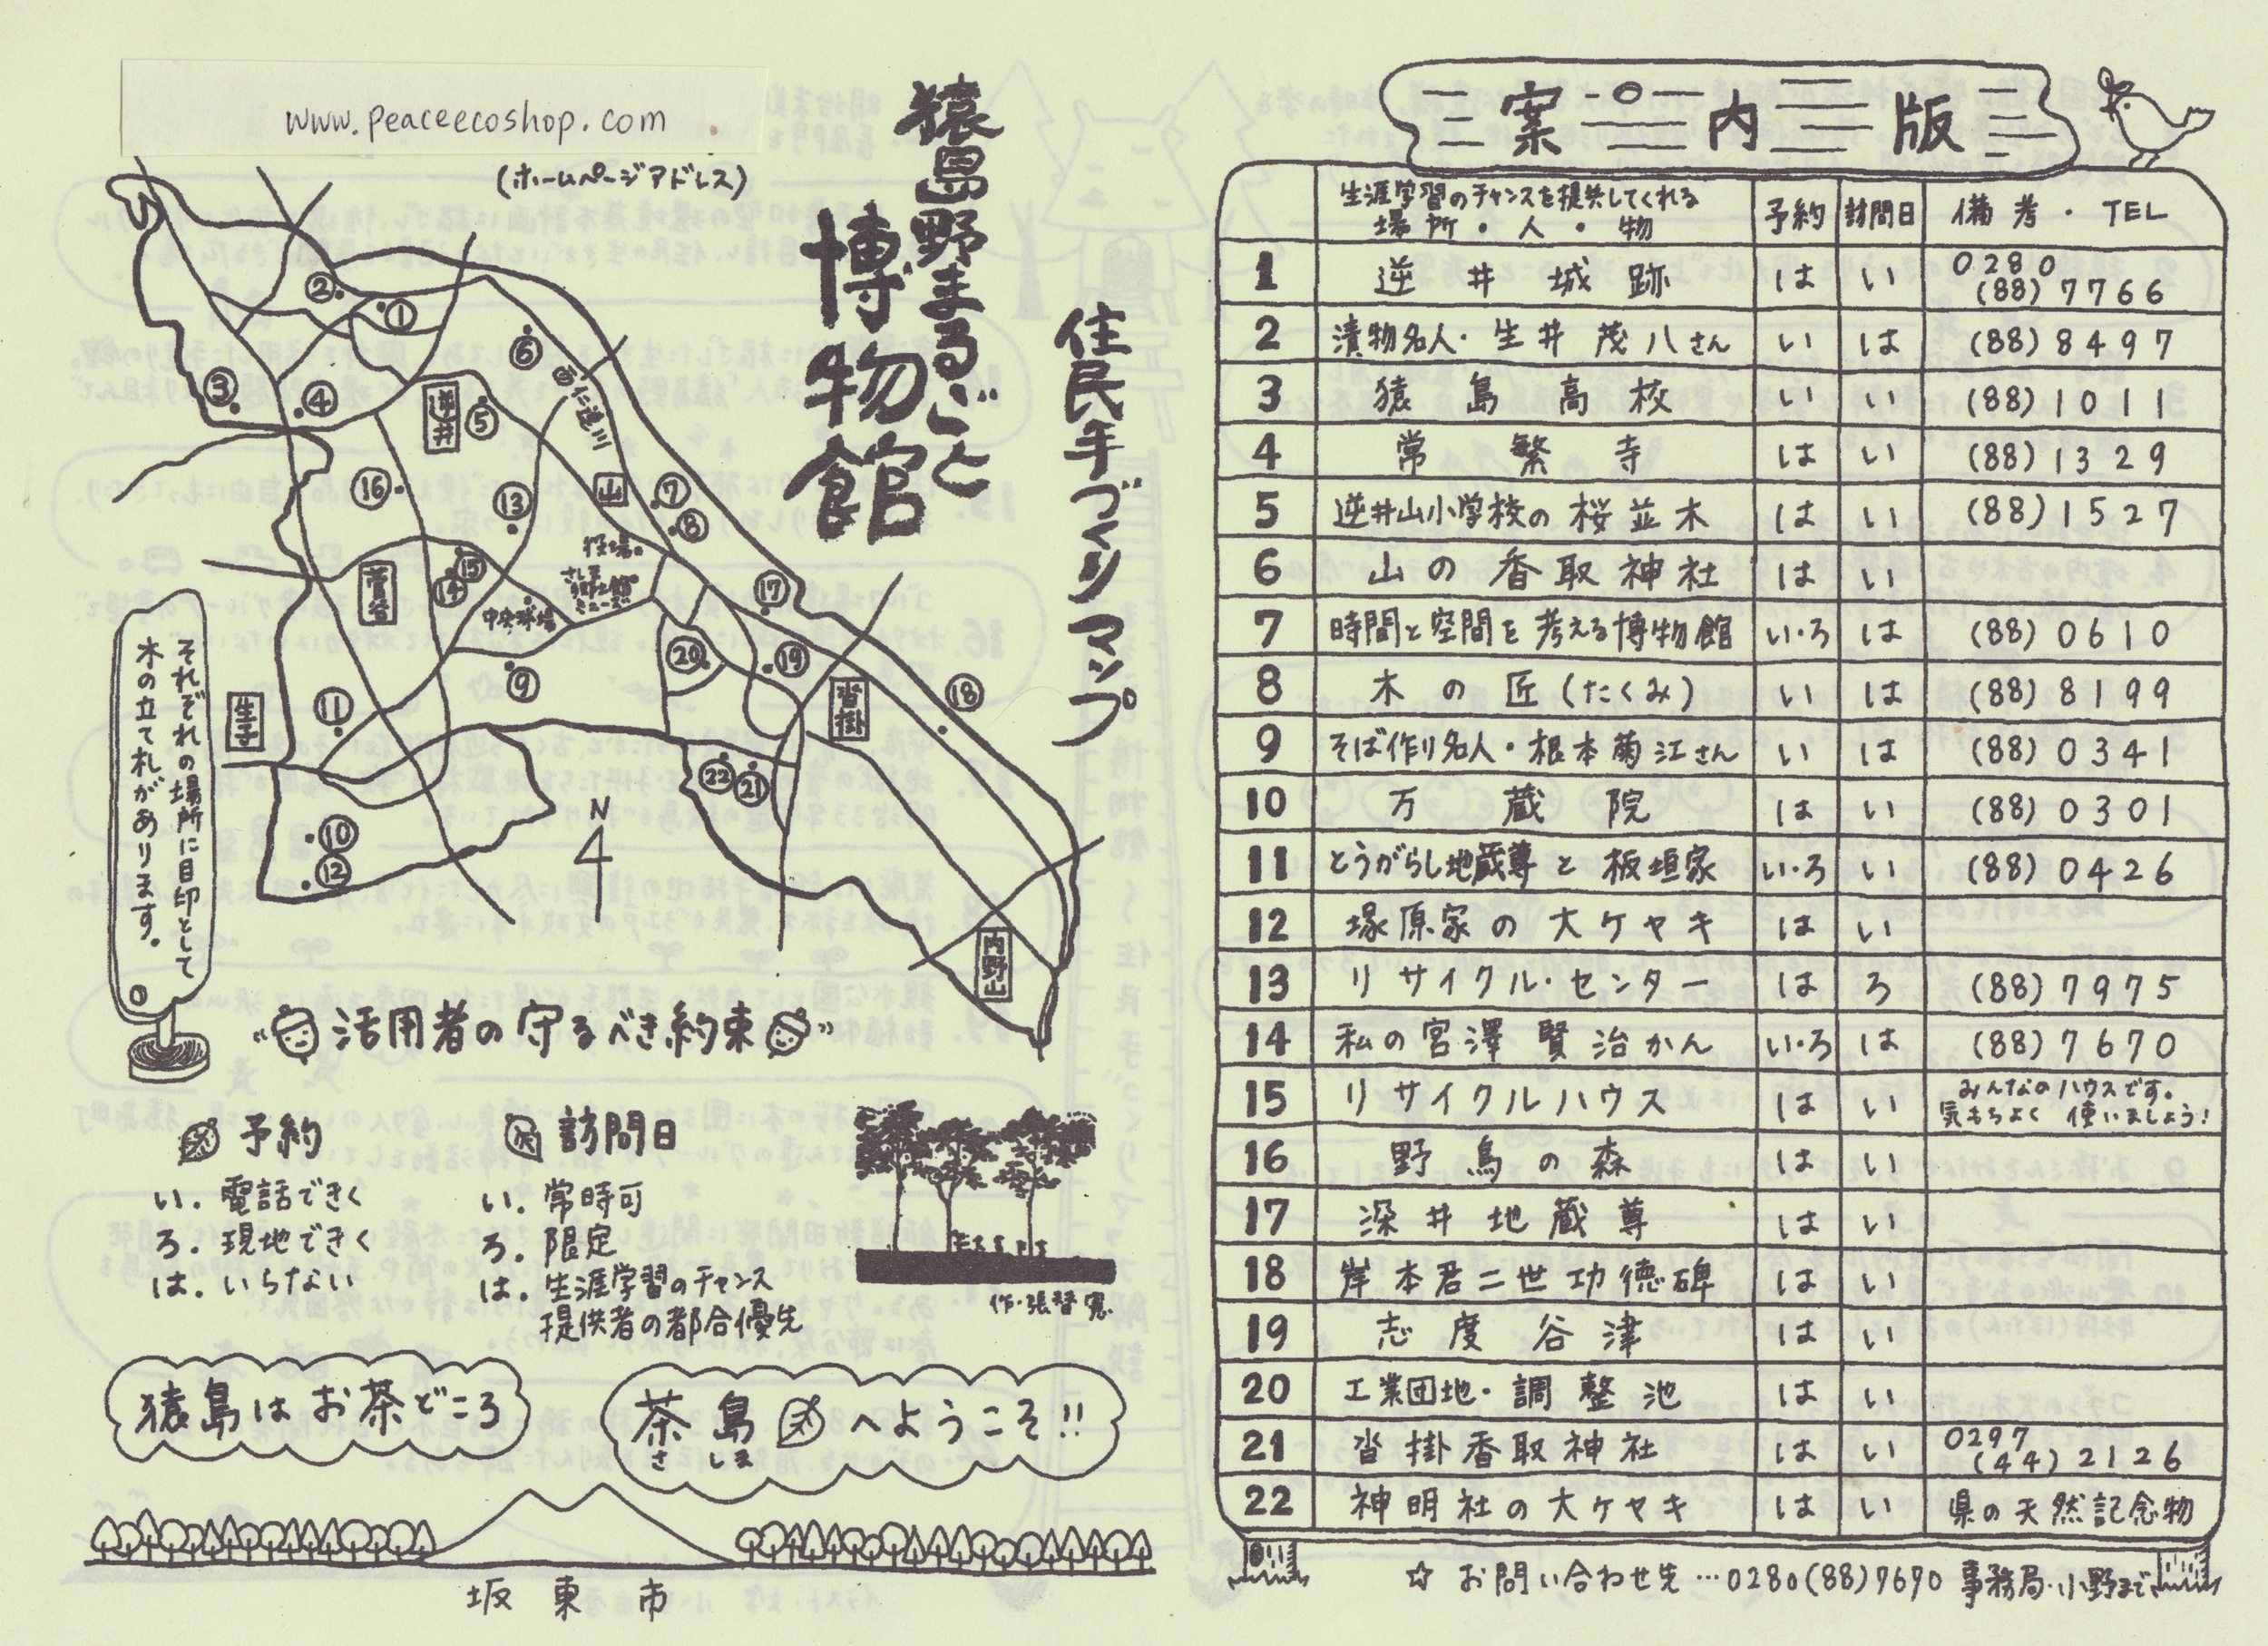 www.peaceecoshop.com
(ホームページアドレス)
猿島野まるごと
博物館
住民手づくりマップ
②
①
③
④
⑥
逆井
⑤
西仁連川
山
⑦
⑧
⑯
⑬
役場
さしま
郷土館
ミューズ
⑮
⑭
菅谷
中央球場
⑰
⑳
⑲
⑨
沓掛
⑱
生子
⑪
㉒
㉑
⑩
⑫
N
内野山
それぞれの場所に目印として
木の立て札があります。
"活用者の守るべき約束"
予約
い. 電話できく
ろ. 現地できく
は. いらない
訪問日
い. 常時可
ろ. 限定
は. 生涯学習のチャンス
提供者の都合優先
作・張替 寛
猿島はお茶どころ
茶島へようこそ!!
さ しま
坂東市
案内版
生涯学習のチャンスを提供してくれる
場所・人・物 予約 訪問日 備考・TEL
1 逆井城跡 は い 0280(88)7766
2 漬物名人・生井茂八さん い は (88)8497
3 猿島高校 い い (88)1011
4 常繁寺 は い (88)1329
5 逆井山小学校の桜並木 は い (88)1527
6 山の香取神社 は い
7 時間と空間を考える博物館 い・ろ は (88)0610
8 木の匠(たくみ) い は (88)8199
9 そば作り名人・根本菊江さん い は (88)0341
10 万蔵院 は い (88)0301
11 とうがらし地蔵尊と板垣家 い・ろ い (88)0426
12 塚原家の大ケヤキ は い
13 リサイクル・センター は ろ (88)7975
14 私の宮澤賢治かん い・ろ は (88)7670
15 リサイクルハウス は い みんなのハウスです。
気もちよく 使いましょう!
16 野鳥の森 は い
17 深井地蔵尊 は い
18 岸本君二世功徳碑 は い
19 志度谷津 は い
20 工業団地・調整池 は い
21 沓掛香取神社 は い 0297(44)2126
22 神明社の大ケヤキ は い 県の天然記念物
☆ お問い合わせ先…0280(88)7670 事務局・小野まで